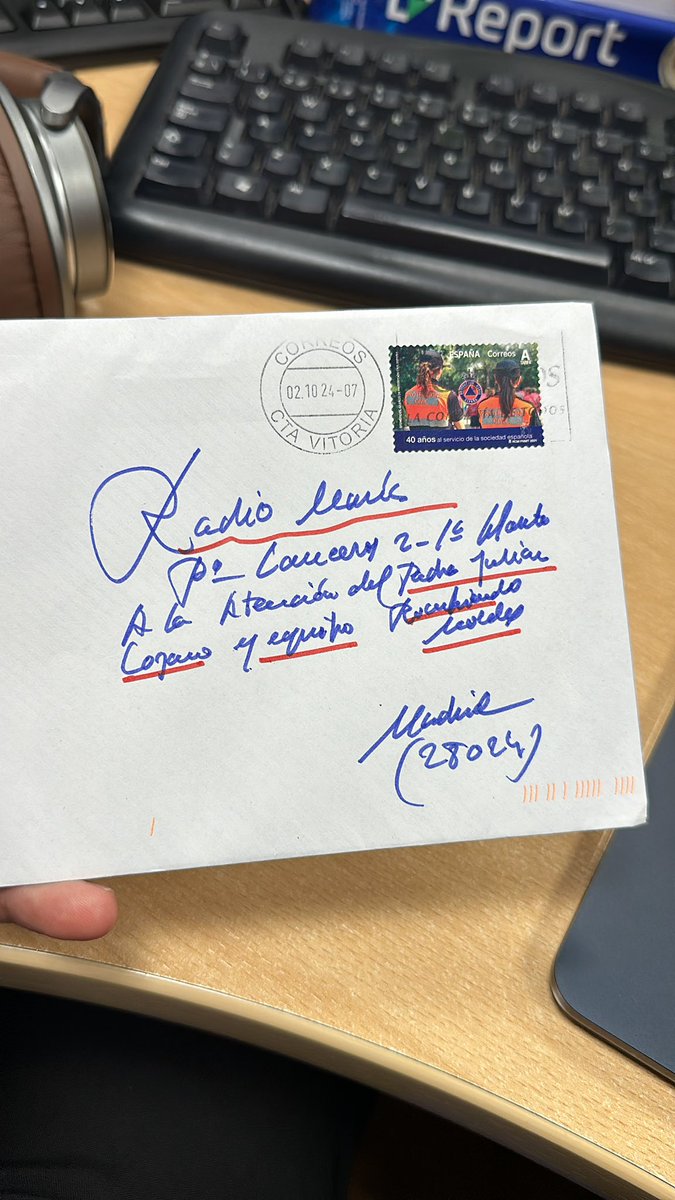 Report
CORREOS
02.10 24-07
CTA VITORIA
ESPAÑA Correos A
40 años al servicio de la sociedad española
Radio María
Pº Lanceros 2-1ª Planta
A la Atención del Padre Julián
Lozano y equipo Rompiendo
Moldes
Madrid
(28024)